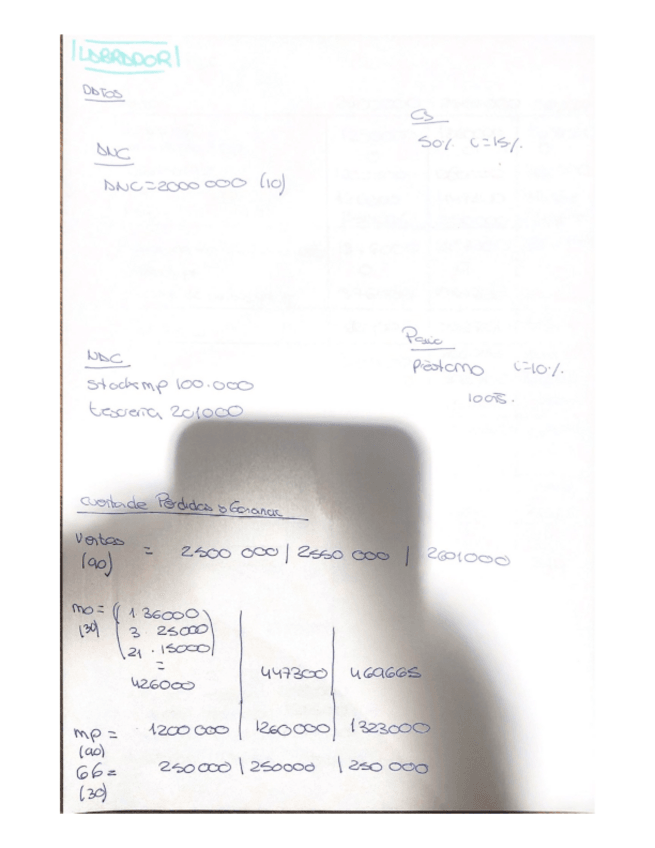 LABRADOR
DATOS
CS
50% C=15%
ANC
ANC=2000000 (10)
Pasivo
Préstamo C=10%
100%
NOC
stock mp 100.000
tesorería 201000
Cuenta de Pérdidas y Ganancia
Ventas = 2500 000 | 2550 000 | 2601000
(90)
mo = 1 36000
(30) 3 . 25000
21 . 15000
=
426000 | 447300 | 469665
mp = 1200 000 | 1260000 | 1323000
(90)
GG = 250000 | 250000 | 250 000
(30)